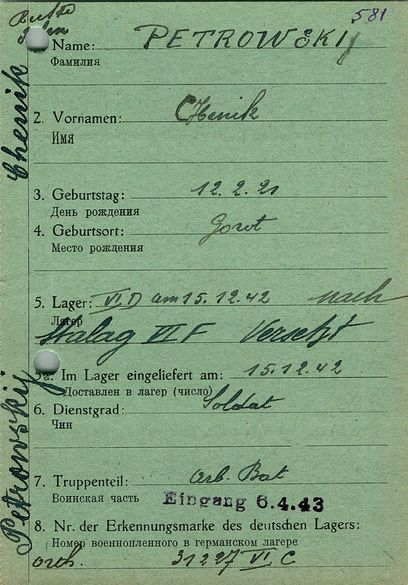 581
Name: PETROWSKIJ
Фамилия
2. Vornamen: Chenik
Имя
3. Geburtstag: 12.2.21
День рождения
4. Geburtsort:
Место рождения
5. Lager: VI D am 15.12.42 nach
Лагер
Stalag VI F Versetzt
5a. Im Lager eingeliefert am: 15.12.42
Доставлен в лагер (число)
6. Dienstgrad: Soldat
Чин
7. Truppenteil: Arb. Bat
Воинская часть Eingang 6.4.43
8. Nr. der Erkennungsmarke des deutschen Lagers:
Номер военнопленного в германском лагере
31227 VI C
Petrowskij Chenik